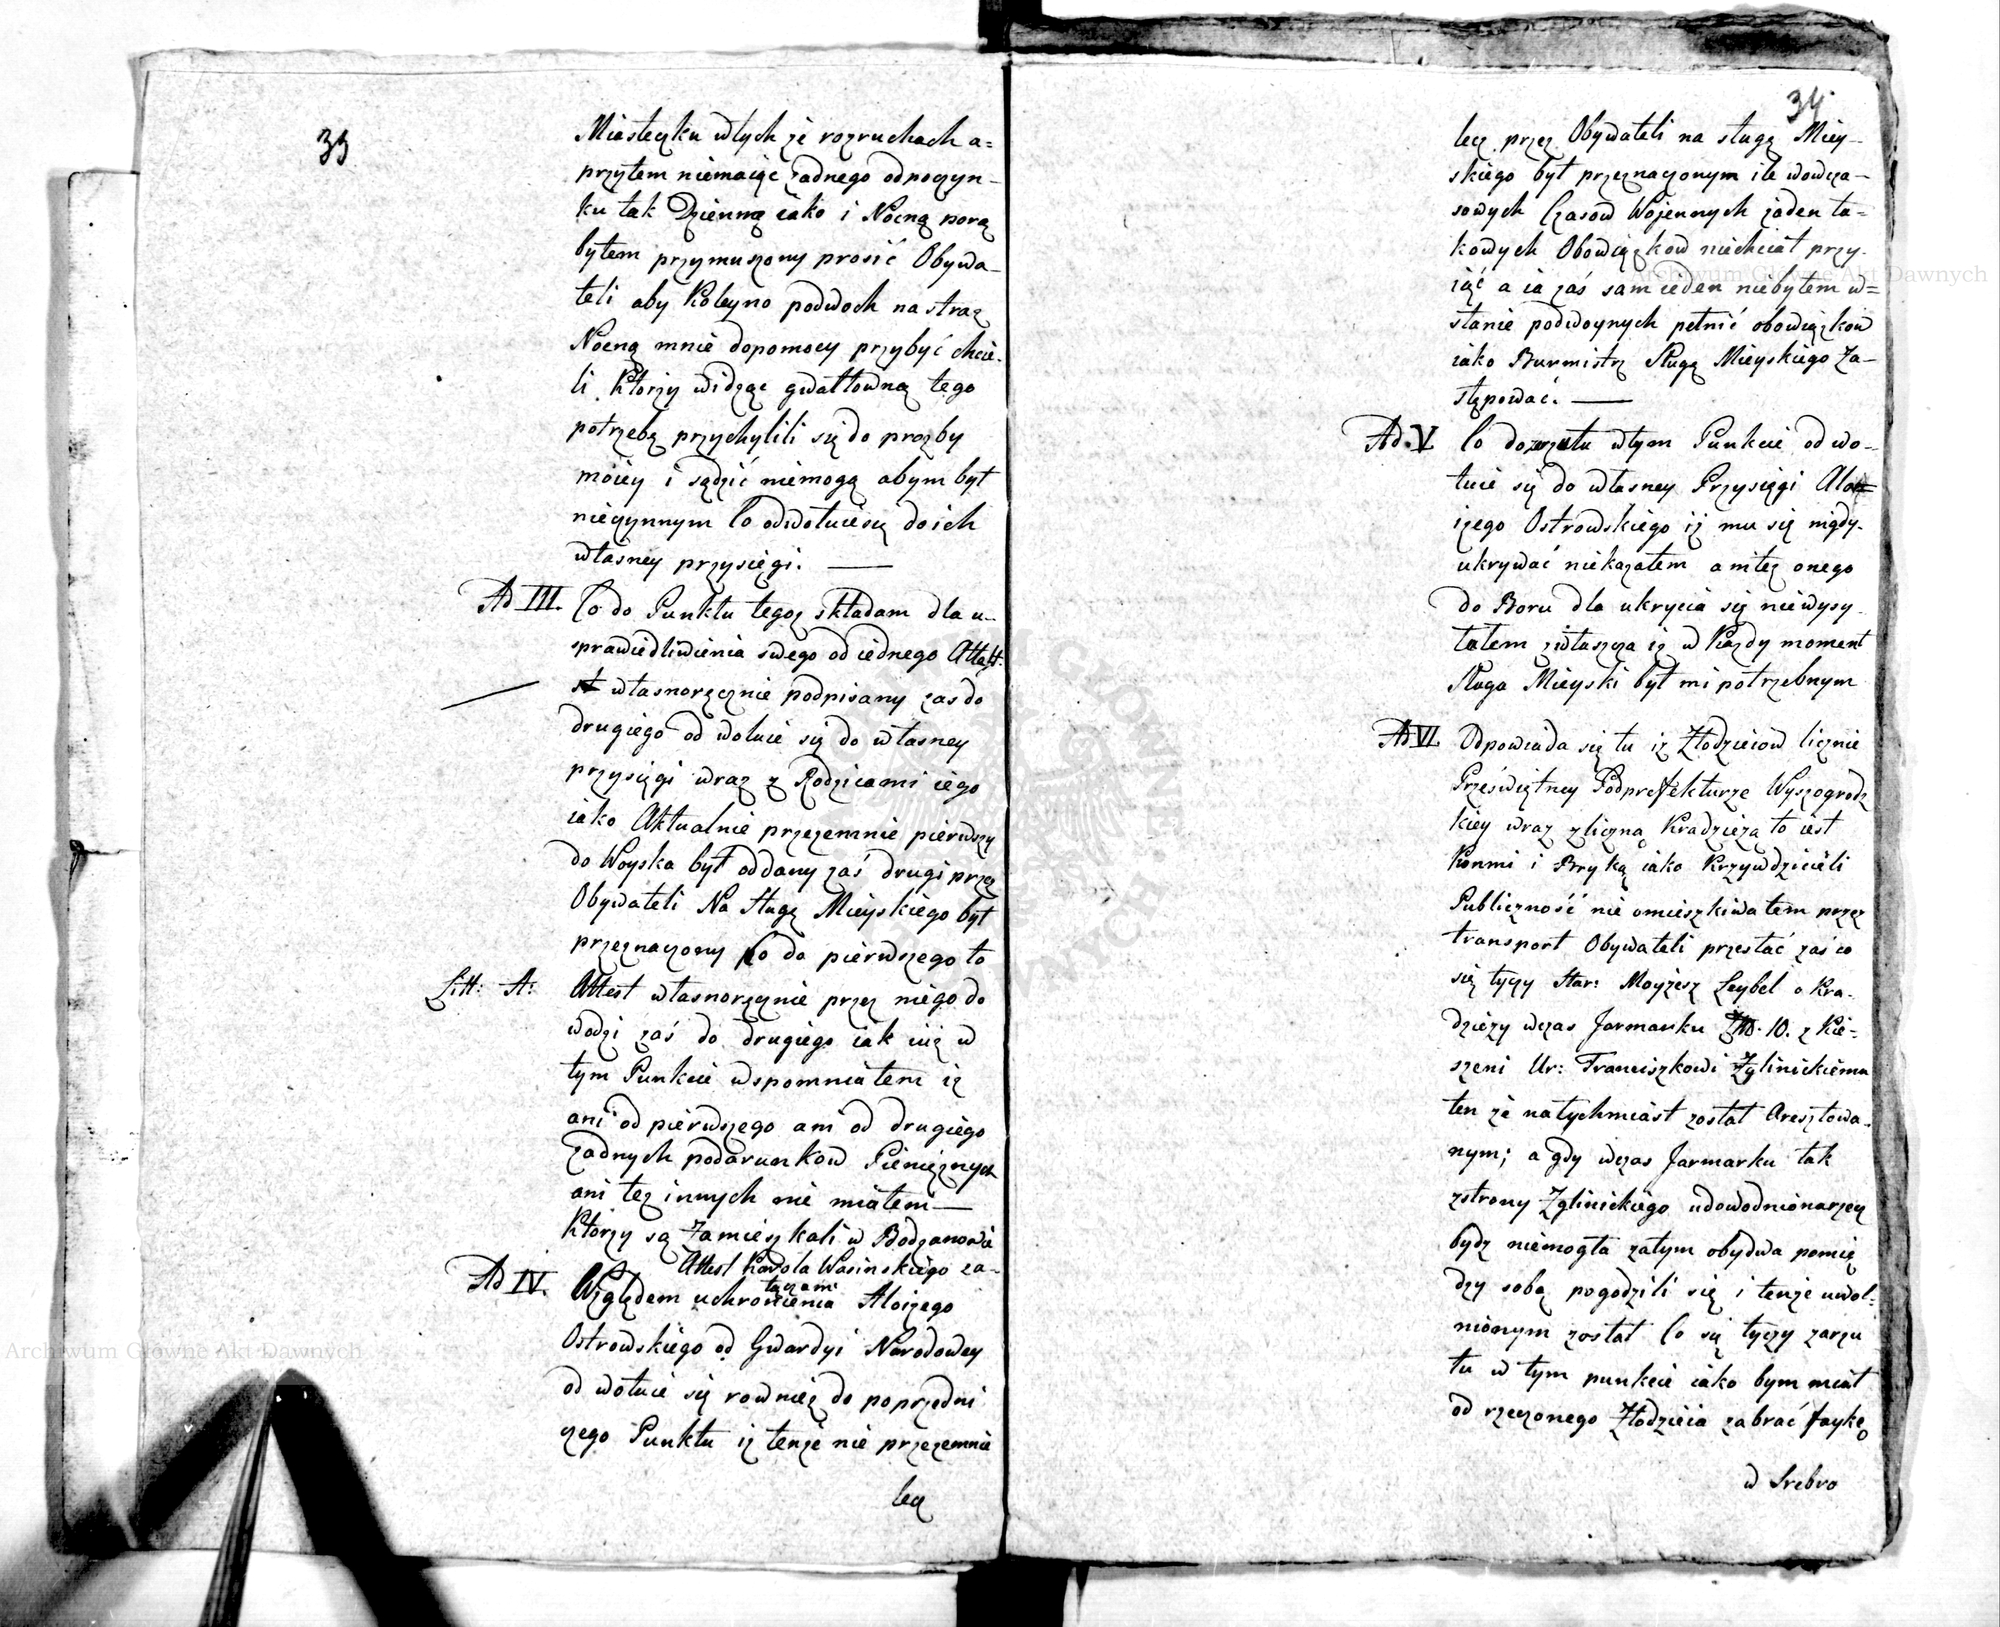 33
Miasteczku wtych że rozruchach a=
przytem niemaiąc żadnego odpoczyn-
ku tak Dzienną iako i Nocną porą
byłem przymuszony prosić Obywa-
teli aby Koleyno podwoch na straz
Nocną mnie dopomocy przybyć chcie-
li Ktorzy widząc gwałtowną tego
potrzebę przychylili się do prozby
moiey i sądzić niemogą abym był
nieczynnym Co odwołuiesię do ich
własney przysięgi. —
Ad III. Co do Punktu tegoz składam dla u-
sprawiedliwienia swego od iednego Attest
własnoręcznie podpisany zas do
drugiego od wołuie się do własney
przysięgi wraz z Rodzicami iego
iako Aktualnie przezemnie pierwszy
do Woyska był oddany zaś drugi przez
Obywateli Na sługę Mieyskiego był
przeznaczony Co do pierwszego to
Litt: A: Attest własnoręcznie przez niego do
wodzi zaś do drugiego iak iuż w
tym Punkcie wspomniałem iż
ani od pierwszego ani od drugiego
żadnych podarunkow Pieniężnych
ani tez innych nie miałem —
Ktorzy są Zamieszkali w Bodzanowie
Attest Karola Wasinskiego za-
łączam
Ad IV. Względem uchronienia Aloizego
Ostrowskiego od Gwardyi Narodowey
od wołuie się rownież do poprzedni
czego Punktu iz tenże nie przezemnie
lecz
34
lecz przez Obywateli na sługę Miey-
skiego był przeznaczonym ile wowcza-
sowych Czasow Wojennych żaden ta=
kowych Obowiązkow niechciał przy-
iąć a ia zaś sam ieden niebyłem w=
stanie podwoynych pełnić obowiązkow
iako Burmistrz Sługę Mieyskiego Za-
stępować. —
Ad. V. Co do zarzutu wtym Punkcie odwo-
łuie się do własney Przysięgi Alo=
izego Ostrowskiego iż mu się nigdy
ukrywać niekazałem anitez onego
do Boru dla ukrycia się niewysy
łałem zwłaszcza iz w Każdy moment
Sługa Mieyski był mi potrzebnym
Ad VI. Odpowiada się tu iz Złodzieiow licznie
Prześwietney Podprefekturze Wyszogrodz
kiey wraz zliczną Kradzieżą to iest
Konmi i Bryką iako Krzywdzicieli
Publiczność nie omieszkiwałem przez
transport Obywateli przesłać zaś co
się tyczy Star: Moyżesz Leybel o Kra-
dzieży wczas Jarmarku 10. z Kie-
szeni Ur: Franciszkowi Zglinickiemu
ten że natychmiast został Aresztowa-
nym; a gdy wczas Jarmarku tak
zstrony Zglinickiego udowodnionarzecz
bydz niemogła zatym obydwa pomię
dzy sobą pogodzili się i tenże uwol-
nionym został Co się tyczy zarzu
tu w tym punkcie iako bym miał
od rzeczonego Złodzieia zabrać faykę
w Srebro
Archiwum Główne Akt Dawnych
Archiwum Główne Akt Dawnych